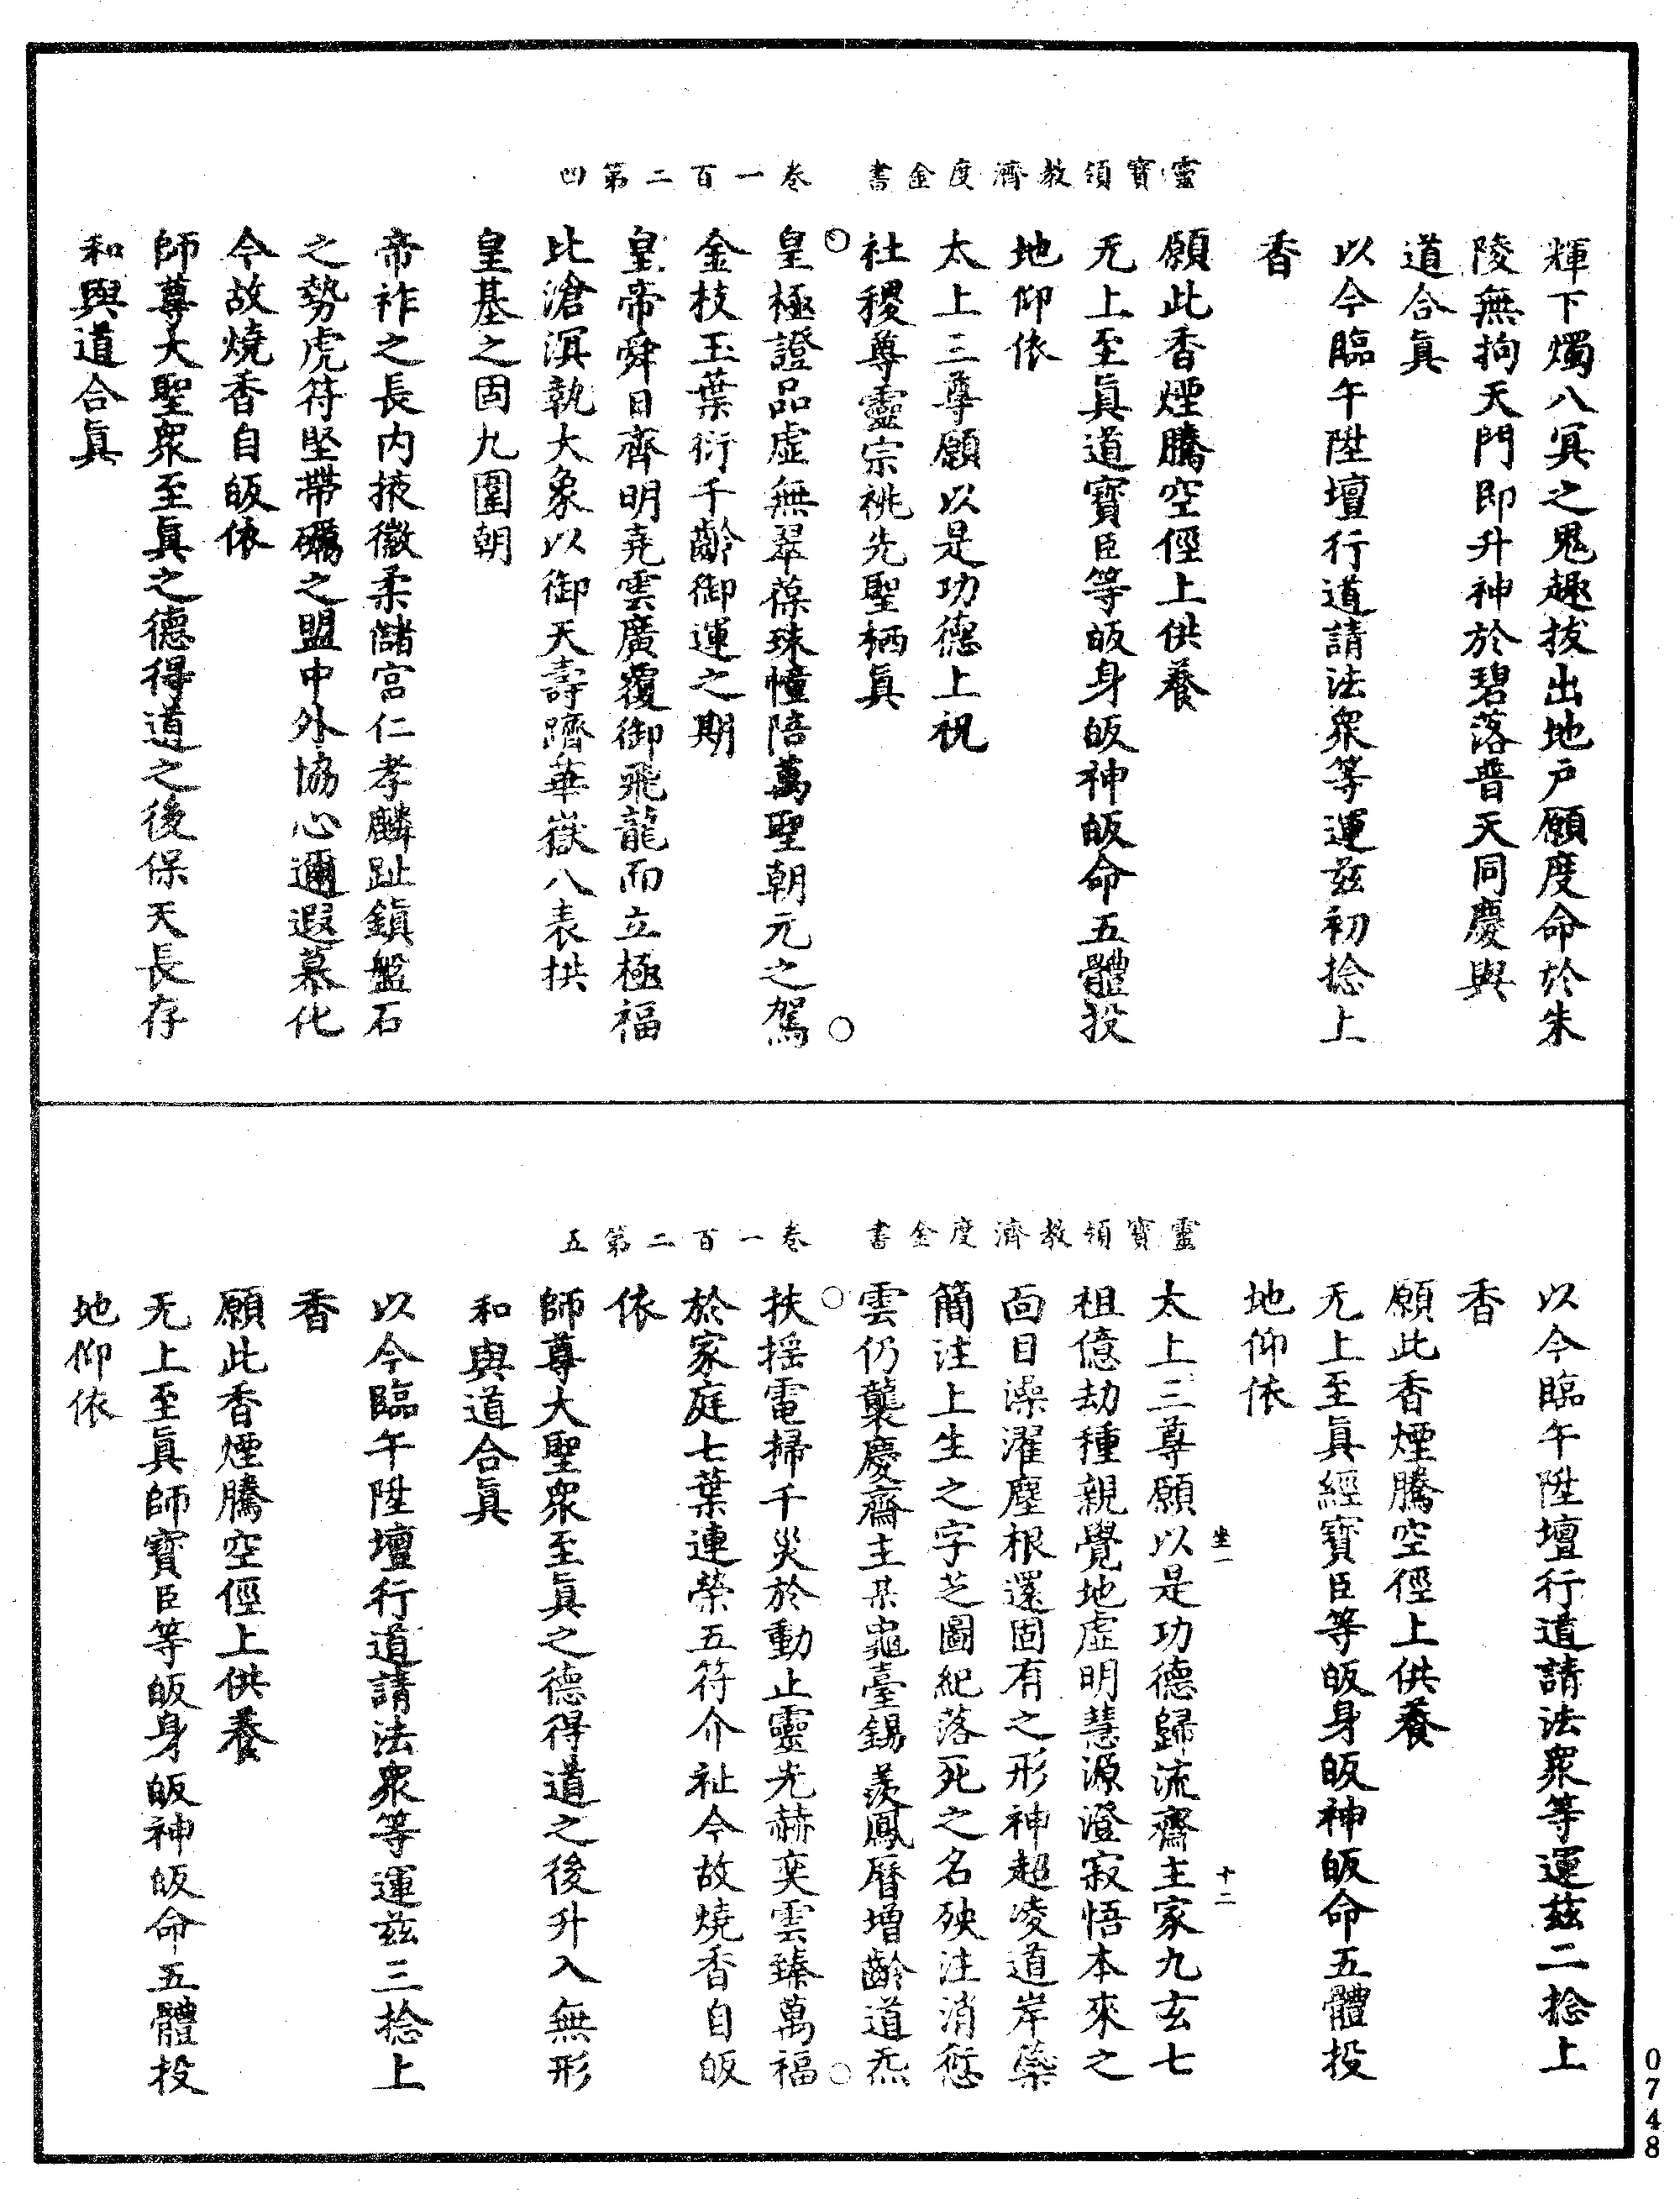 靈寶領教濟度金書 卷一百二第四
輝下燭八冥之鬼趣拔出地戶願度命於朱
陵無拘天門即升神於碧落普天同慶與
道合眞
以今臨午陞壇行道請法衆等運兹初捻上
香
願此香煙騰空徑上供養
无上至眞道寶臣等皈身皈神皈命五體投
地仰依
太上三尊願以是功德上祝
社稷尊靈宗祧先聖栖眞
皇極證品虛無翠葆珠幢陪萬聖朝元之駕
金枝玉葉衍千齡御運之期
皇帝舜日齊明堯雲廣覆御飛龍而立極福
比滄溟執大象以御天壽躋華嶽八表拱
皇基之固九圍朝
帝祚之長內掖徽柔儲宮仁孝麟趾鎭盤石
之勢虎符堅帶礪之盟中外協心邇遐慕化
今故燒香自皈依
師尊大聖衆至眞之德得道之後保天長存
和與道合眞
靈寶領教濟度金書 卷一百二第五
以今臨午陞壇行道請法衆等運兹二捻上
香
願此香煙騰空徑上供養
无上至眞經寶臣等皈身皈神皈命五體投
地仰依
太上三尊願以是功德歸流齋主家九玄七
祖億劫種親覺地虛明慧源澄寂悟本來之
面目澡濯塵根還固有之形神超凌道岸柒
簡注上生之字芝圖紀落死之名殃注消愆
雲仍襲慶齋主某龜臺錫羨鳳曆增齡道炁
扶搖電掃千災於動止靈光赫奕雲臻萬福
於家庭七葉連榮五符介祉今故燒香自皈
依
師尊大聖衆至眞之德得道之後升入無形
和與道合眞
以今臨午陞壇行道請法衆等運兹三捻上
香
願此香煙騰空徑上供養
无上至眞師寶臣等皈身皈神皈命五體投
地仰依
坐一
十二
0748